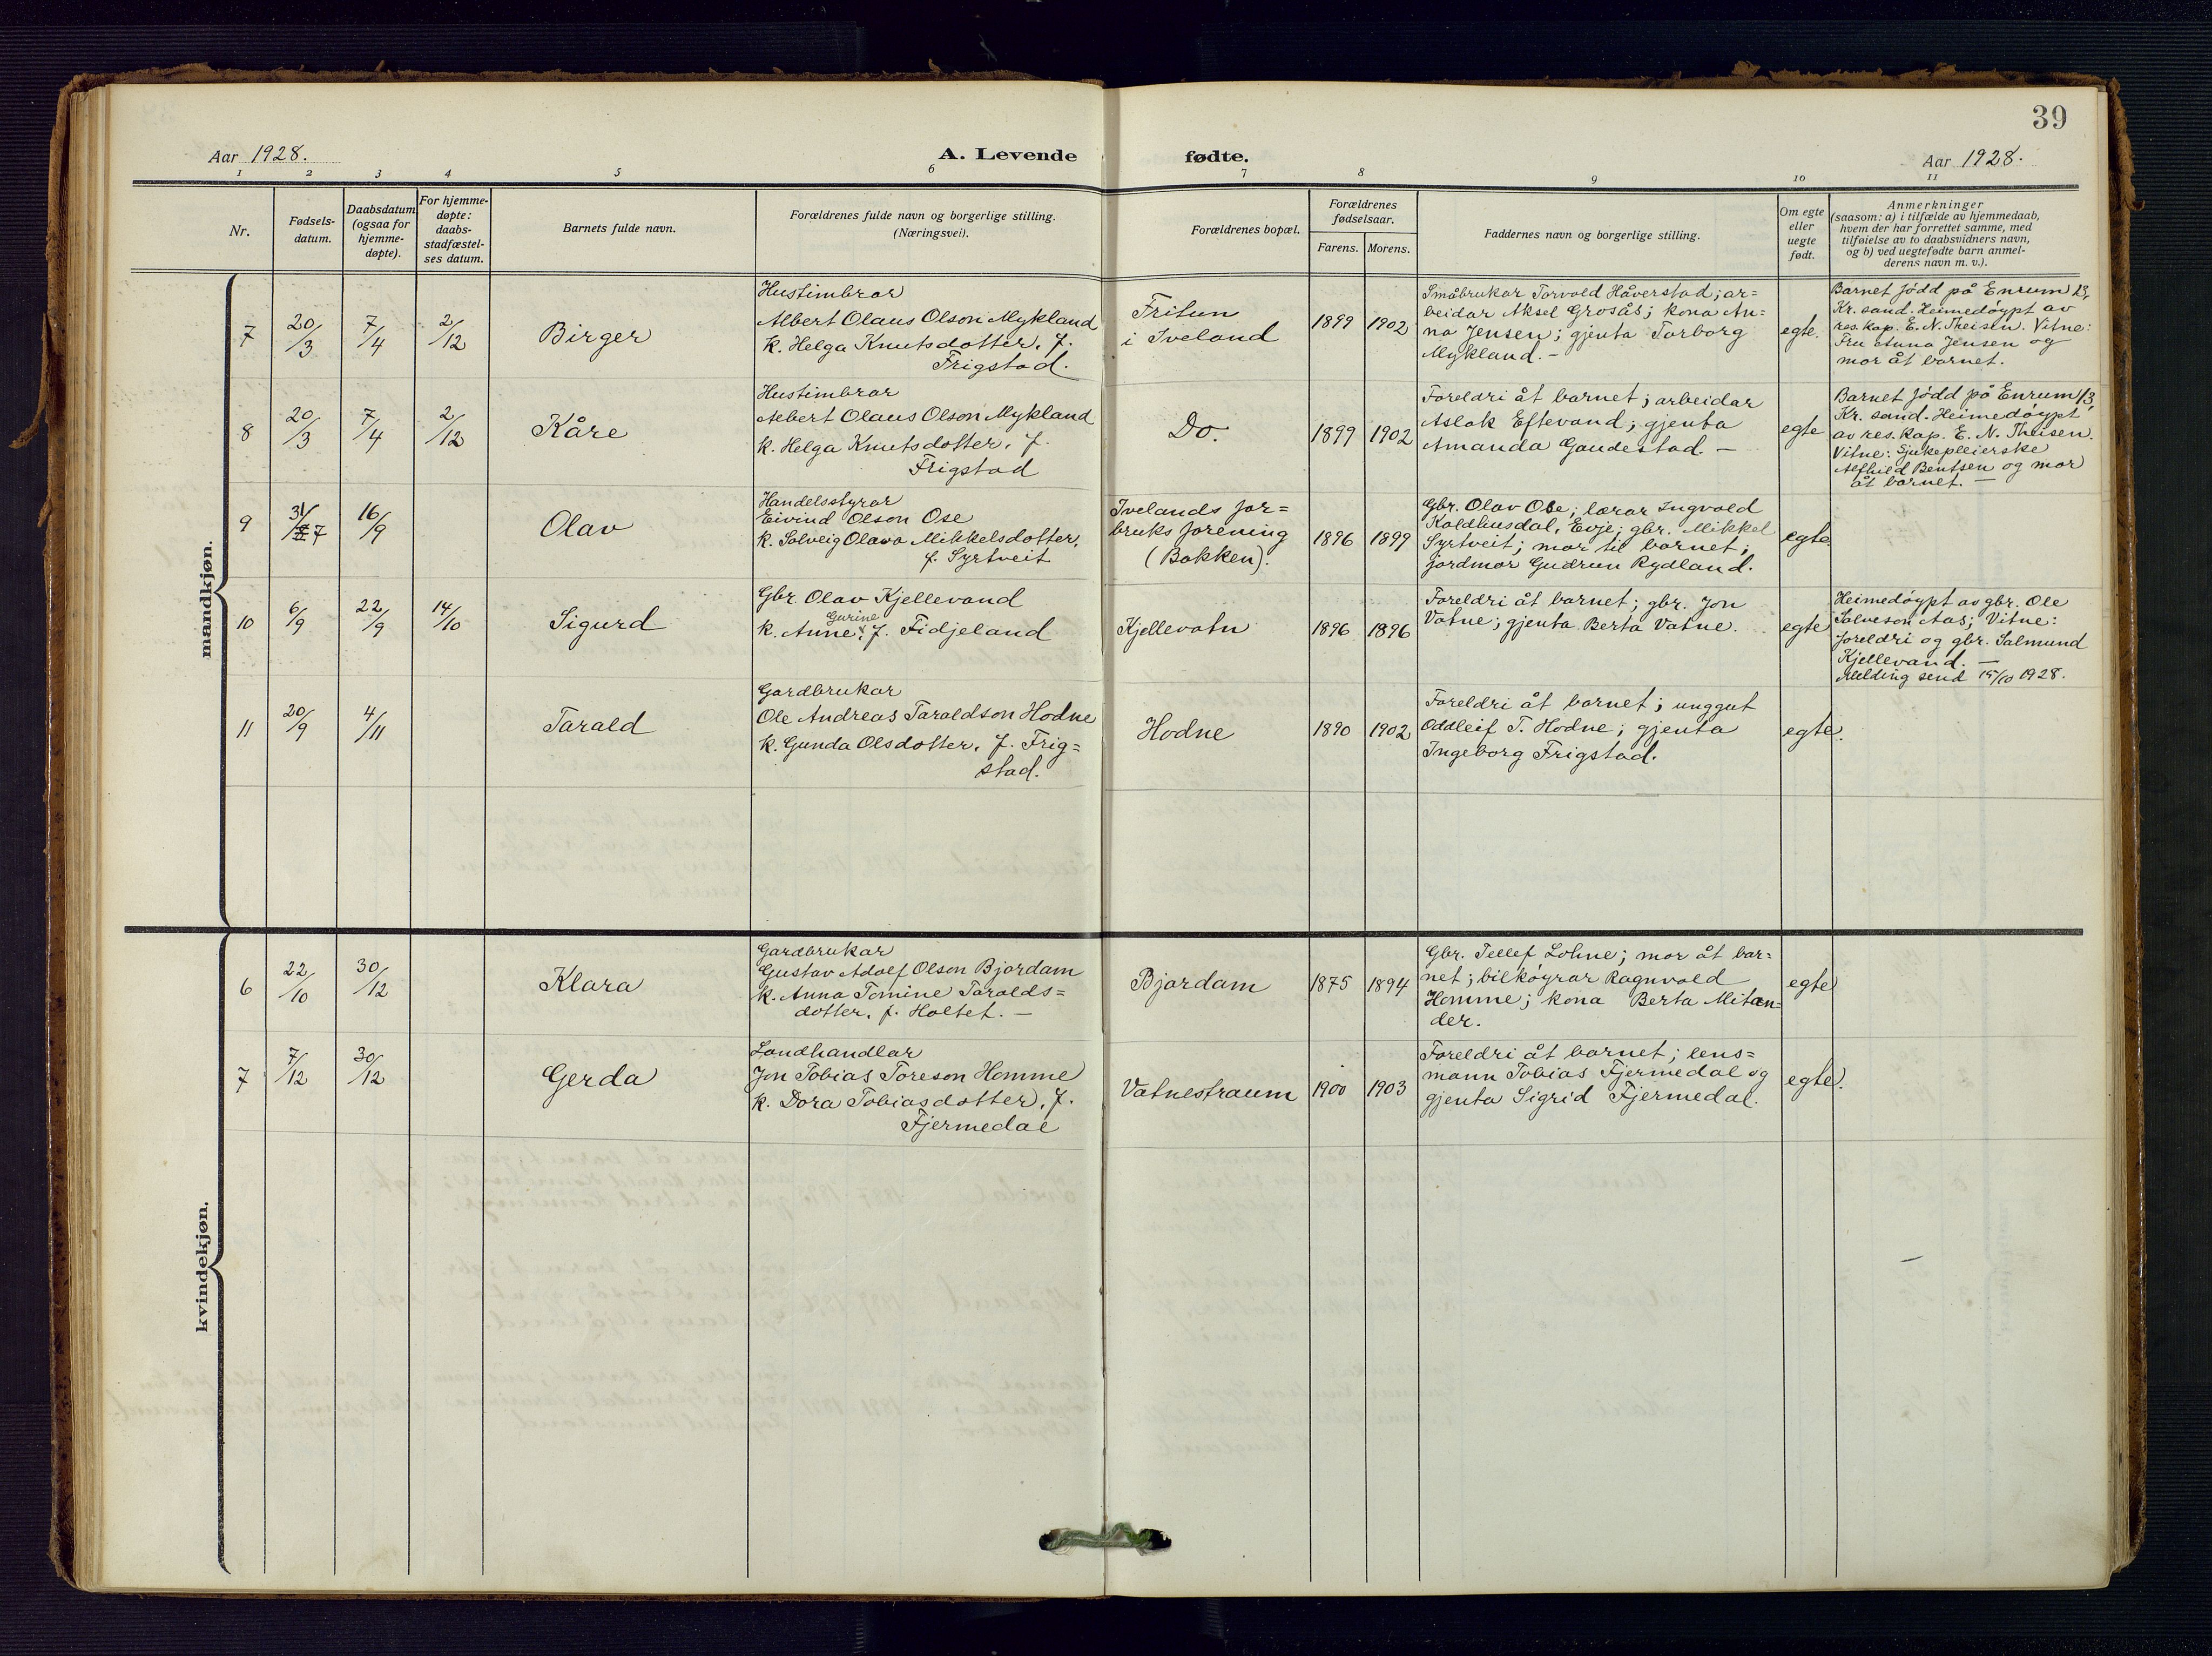 39
Aar 1928.
A. Levende fødte.
Aar 1928.
1 2 3 4 5 6 7 8 9 10 11
Nr.
Fødsels-
datum.
Daabsdatum
(ogsaa for
hjemme-
døpte).
For hjemme-
døpte:
daabs-
stadfæstel-
ses datum.
Barnets fulde navn.
Forældrenes fulde navn og borgerlige stilling.
(Næringsvei).
Forældrenes bopæl.
Forældrenes
fødselsaar.
Farens. Morens.
Faddernes navn og borgerlige stilling.
Om egte
eller
uegte
født.
Anmerkninger
(saasom: a) i tilfælde av hjemmedaab,
hvem der har forrettet samme, med
tilføielse av to daabsvidners navn,
og b) ved uegtefødte barn anmel-
derens navn m. v.).
mandkjøn.
7
20/3
7/4
2/12
Birger
Hustimbrar
Albert Olaus Olson Mykland
k. Helga Knutsdotter, f.
Frigstad.
Fritun
i Iveland
1899
1902
Småbrukar Torvald Håverstad; ar=
beidar Aksel Grosås; kona An-
na Jensen; gjenta Torborg
Mykland. –
egte.
Barnet født på Enrum
Kr. sand. Heimedöypt av
res. kap. E. N. Theisen. Vitne:
Fru Anna Jensen og
mor åt barnet.
8
20/3
7/4
2/12
Kåre
Hustimbrar
Albert Olaus Olson Mykland
k. Helga Knutsdotter, f.
Frigstad
Do.
1899
1902
Foreldri åt barnet; arbeidar
Aslak Eftevand; gjenta
Amanda Gaudestad. –
egte
Barnet født på Enrum
Kr. sand. Heimedöypt
av res. kap. E. N. Theisen.
Vitne: Sjukepleierske
Alfhild Bentsen og mor
åt barnet. –
9
31/7
16/9
Olav
Handelsstyrar
Eivind Olson Ose
k. Solveig Olava Mikkelsdotter,
f. Syrtveit
Ivelands for=
bruks forening
(Bakken).
1896
1899
Gbr. Olav Ose; lærar Ingvald
Koldhusdal, Evje; gbr. Mikkel
Syrtveit; mor til barnet;
jordmor Gudrun Rydland.
egte.
10
6/9
22/9
14/10
Sigurd
Gbr. Olav Kjellevand
Gurine
k. Anne, f. Fidjeland
Kjellevatn
1896
1896
Foreldri åt barnet; gbr. Jon
Vatne; gjenta Berta Vatne.
egte
Heimedöypt av gbr. Ole
Salveson Aas; Vitne:
foreldri og gbr. Salmund
Kjellevand. –
Melding send 15/10 1928.
11
20/9
4/11
Tarald
Gardbrukar
Ole Andreas Taraldson Hodne
k. Gunda Olsdotter, f. Frig=
stad.
Hodne
1890
1902
Foreldri åt barnet; unggut
Oddleif T. Hodne; gjenta
Ingeborg Frigstad.
egte.
kvindekjøn.
6
22/10
30/12
Klara
Gardbrukar
Gustav Adolf Olson Bjordam
k. Anna Tomine Taralds=
dotter, f. Holtet. –
Bjordam
1875
1894
Gbr. Tellef Lohne; mor åt bar=
net; bilköyrar Ragnvald
Homme; kona Berta Mitan=
der.
egte
7
7/12
30/12
Gerda
Landhandlar
Jon Tobias Toreson Homme
k. Dora Tobiasdotter, f.
Fjermedal
Vatnestraum
1900
1903
Foreldri åt barnet; lens=
mann Tobias Fjermedal og
gjenta Sigrid Fjermedal.
egte.